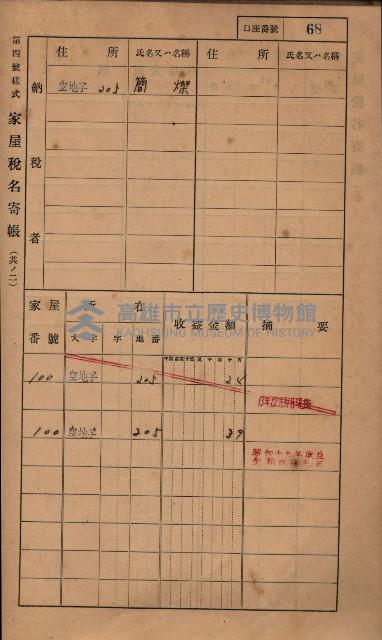 口座番號 68
第四號樣式 家屋稅名寄帳 (其ノ二)
納稅者
住所 氏名又ハ名稱 住所 氏名又ハ名稱
空地子 205 簡燦
家屋番號 所在 收益金額 摘要
大字 字 地番
100 空地子 205 24
100 空地子 205 39
昭和十九年度
高雄市立歷史博物館
KAOHSIUNG MUSEUM OF HISTORY